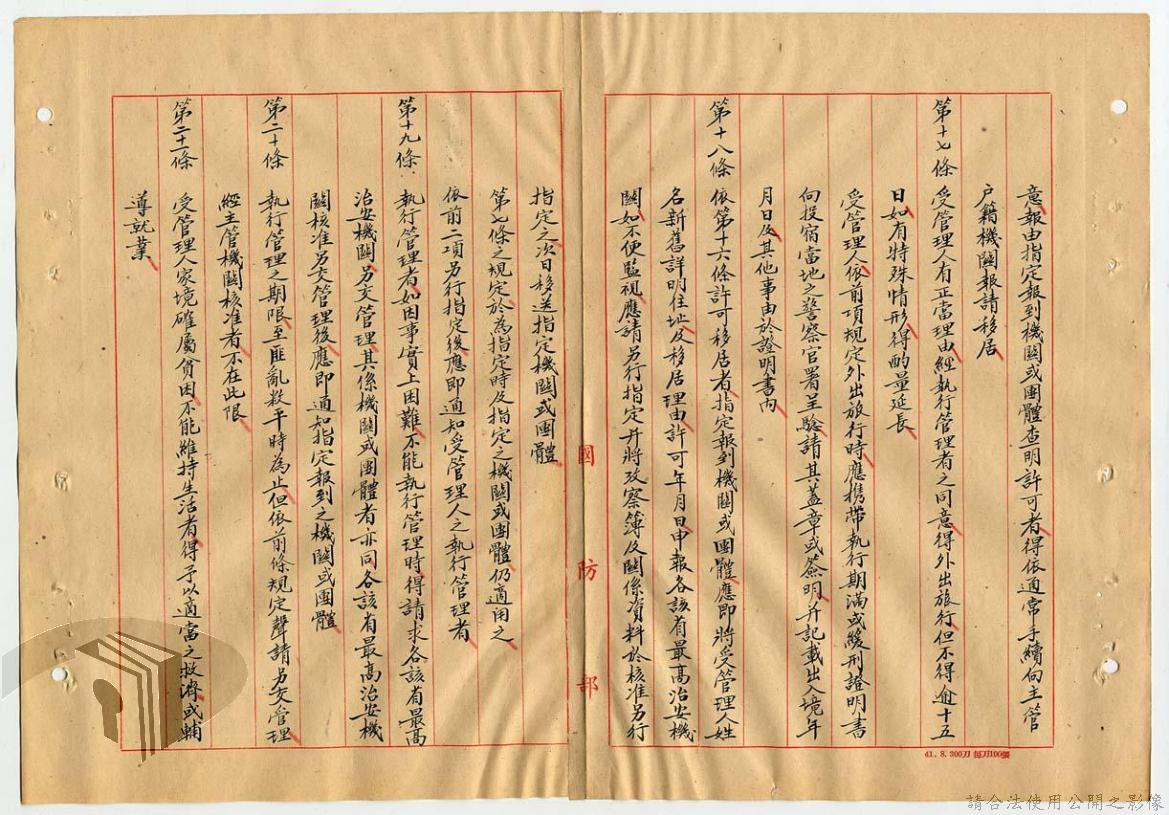 意報由指定報到機關或團體查明許可者得依通常手續向主管
户籍機關報請移居
第十七條 受管理人有正當理由經執行管理者之同意得外出旅行但不得逾十五
日如有特殊情形得酌量延長
受管理人依前項規定外出旅行時應携帶執行期滿或緩刑證明書
向投宿當地之警察官署呈驗請其蓋章或簽明并記載出入境年
月日及其他事由於證明書內
第十八條 依第十六條許可移居者指定報到機關或團體應即將受管理人姓
名新舊詳明住址及移居理由許可年月日申報各該有最高治安機
關如不便監視應請另行指定并將攷察簿及關係資料於核准另行
指定之次日移送指定機關或團體
第七條之規定於為指定時及指定之機關或團體仍適用之
依前二項另行指定後應即通知受管理人之執行管理者
第十九條 執行管理者如因事實上困難不能執行管理時得請求各該省最高
治安機關另交管理其係機關或團體者亦同各該省最高治安機
關核准另交管理後應即通知指定報到之機關或團體
第二十條 執行管理之期限至匪亂救平時為止但依前條規定聲請另交管理
經主管機關核准者不在此限
第二十一條 受管理人家境確屬貧困不能維持生活者得予以適當之救濟或輔
導就業
國防部
41.8.300刀 每刀100張
請合法使用公開之影像